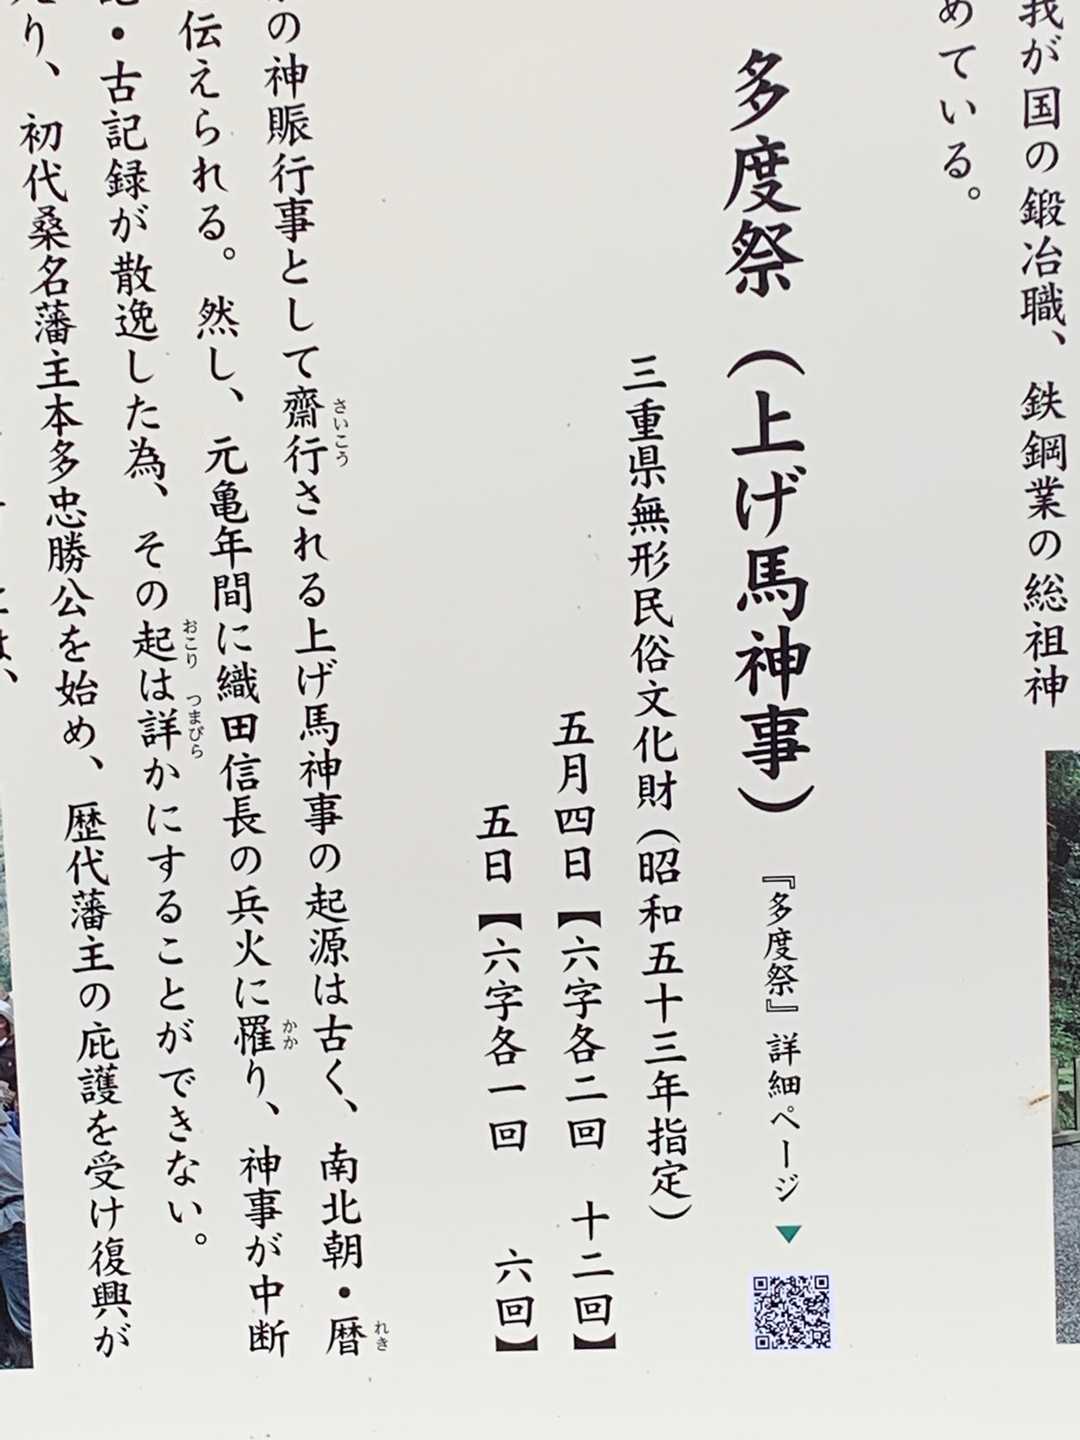 我が国の鍛冶職、鉄鋼業の総祖神
めている。
多度祭（上げ馬神事）『多度祭』詳細ページ▼
三重県無形民俗文化財（昭和五十三年指定）
五月四日【六字各二回 十二回】
五日【六字各一回 六回】
の神賑行事として齋行される上げ馬神事の起源は古く、南北朝・暦
さいこう
れき
伝えられる。然し、元亀年間に織田信長の兵火に罹り、神事が中断
かか
・古記録が散逸した為、その起は詳かにすることができない。
おこり つまびら
り、初代桑名藩主本多忠勝公を始め、歴代藩主の庇護を受け復興が
は、